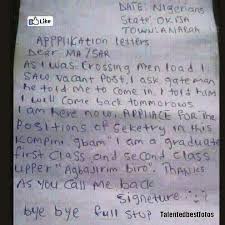 DATE: Nigerians
State: OKIJA
TOWN: ANABRA
Like
APPPLIKATION letters
Dear MA/SAR
AS I was crossing men load I
SAW vacant Post, I ask gateman
he told me to come in, I told ham
I will come back tommorows
I am here now, APPLIACE FOR The
Positions of Seketry in this
Kompini. gbam" I am a graduate
First class and second class
upper "Agbajirim biro". Thanks
As you call me back
Signeture
bye bye full stop
Talentedbestlotos